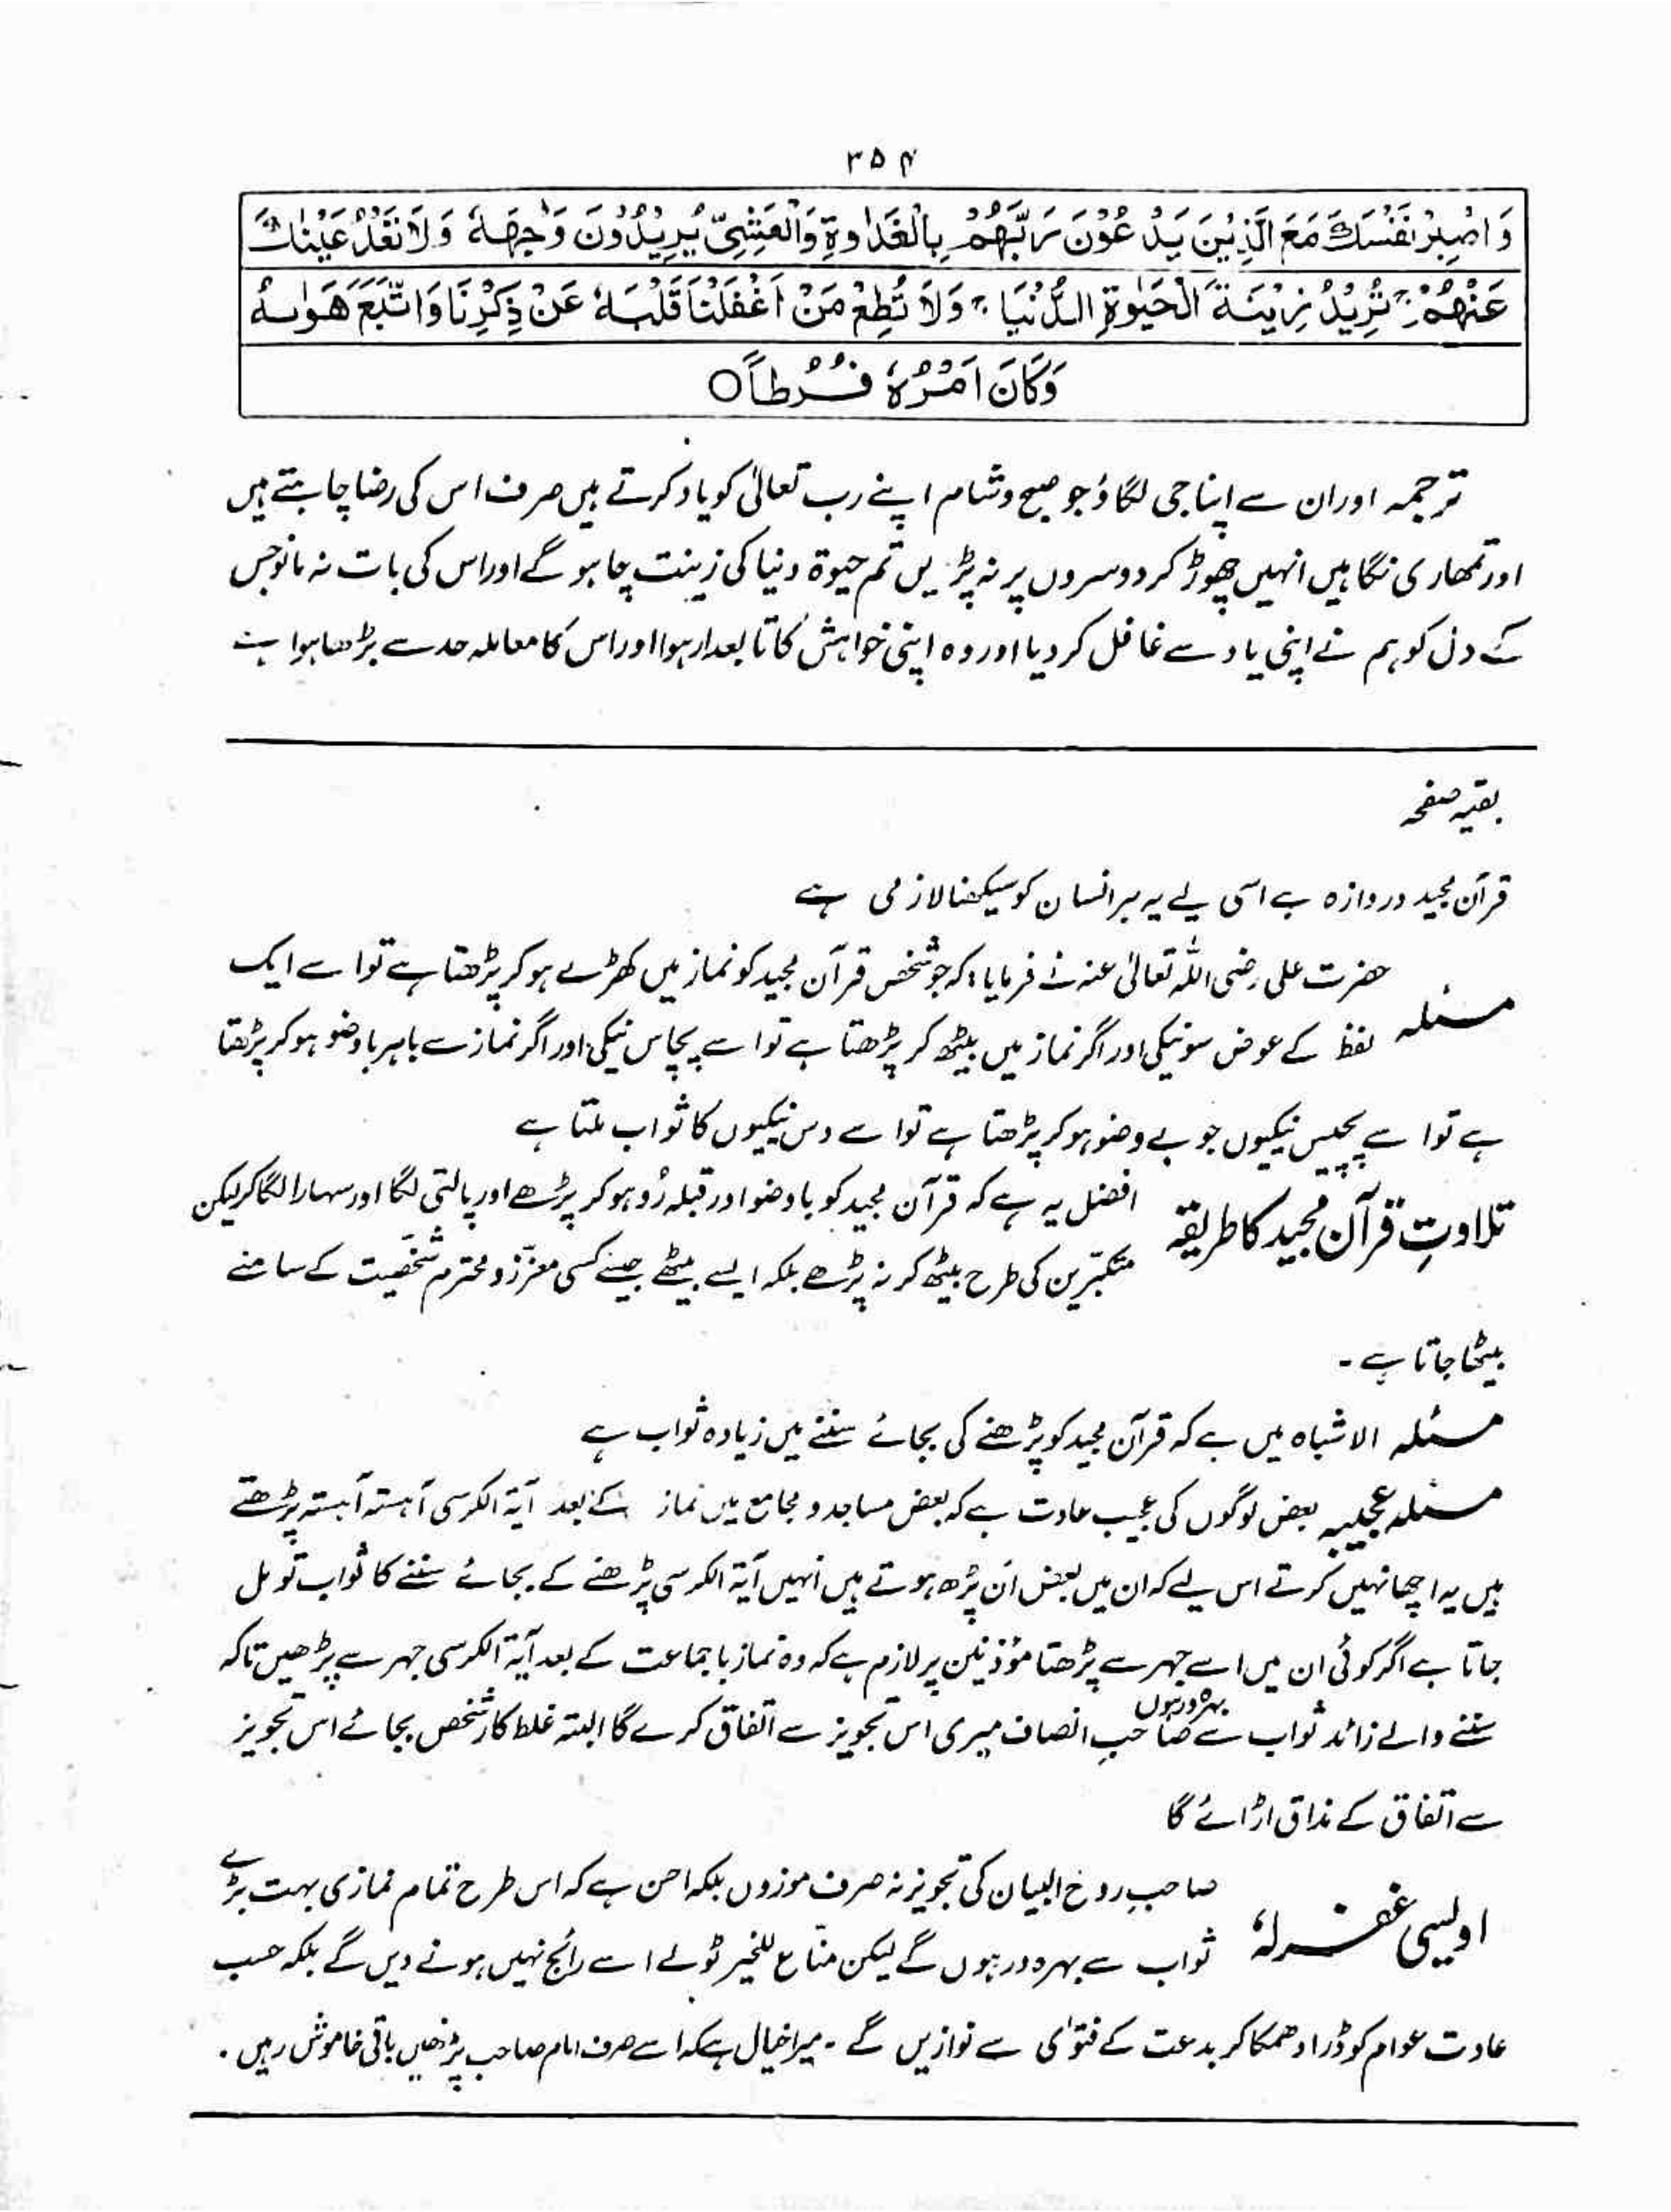 ۳۵۴
وَاصْبِرْ نَفْسَكَ مَعَ الَّذِيْنَ يَدْعُوْنَ رَبَّهُمْ بِالْغَدٰوةِ وَالْعَشِيِّ يُرِيْدُوْنَ وَجْهَهٗ وَلَا تَعْدُ عَيْنٰكَ
عَنْهُمْ ۚ تُرِيْدُ زِيْنَةَ الْحَيٰوةِ الدُّنْيَا ۚ وَلَا تُطِعْ مَنْ اَغْفَلْنَا قَلْبَهٗ عَنْ ذِكْرِنَا وَاتَّبَعَ هَوٰىهُ
وَكَانَ اَمْرُهٗ فُرُطًا ○
ترجمہ اور ان سے اپنا جی لگاؤ جو صبح و شام اپنے رب تعالیٰ کو یاد کرتے ہیں صرف اس کی رضا چاہتے ہیں
اور تمھاری نگاہیں انہیں چھوڑ کر دوسروں پر نہ پڑیں تم حیوۃ دنیا کی زینت چاہو گے اور اس کی بات نہ مانو جس
کے دل کو ہم نے اپنی یاد سے غافل کر دیا اور وہ اپنی خواہش کا تابعدار ہوا اور اس کا معاملہ حد سے بڑھا ہوا ہے
بقیہ صفحہ
قرآن مجید دروازہ ہے اسی لیے یہ ہر انسان کو سیکھنا لازمی ہے
مسئلہ حضرت علی رضی اللہ تعالیٰ عنہ نے فرمایا کہ جو شخص قرآن مجید کو نماز میں کھڑے ہو کر پڑھتا ہے تو اسے ایک
لفظ کے عوض سو نیکی اور اگر نماز میں بیٹھ کر پڑھتا ہے تو اسے پچاس نیکی اور اگر نماز سے باہر باوضو ہو کر پڑھتا
ہے تو اسے پچیس نیکیوں جو بے وضو ہو کر پڑھتا ہے تو اسے دس نیکیوں کا ثواب ملتا ہے
تلاوتِ قرآن مجید کا طریقہ افضل یہ ہے کہ قرآن مجید کو باوضو اور قبلہ رُو ہو کر پڑھے اور پالتی لگا اور سہارا لگا کر لیکن
متکبّرین کی طرح بیٹھ کر نہ پڑھے بلکہ ایسے بیٹھے جیسے کسی معزّز و محترم شخصیت کے سامنے
بیٹھا جاتا ہے ۔
مسئلہ الاشباہ میں ہے کہ قرآن مجید کو پڑھنے کی بجائے سننے میں زیادہ ثواب ہے
مسئلہ عجیبہ بعض لوگوں کی عجیب عادت ہے کہ بعض مساجد و مجامع میں نماز کے بعد آیۃ الکرسی آہستہ آہستہ پڑھتے
ہیں یہ اچھا نہیں کرتے اس لیے کہ ان میں بعض اَن پڑھ ہوتے ہیں اُنہیں آیۃ الکرسی پڑھنے کے بجائے سننے کا ثواب تو مل
جاتا ہے اگر کوئی ان میں اسے جہر سے پڑھتا مؤذنین پر لازم ہے کہ وہ نماز باجماعت کے بعد آیۃ الکرسی جہر سے پڑھیں تاکہ
سننے والے زائد ثواب سے بہرہ ور ہوں صاحبِ انصاف میری اس تجویز سے اتفاق کرے گا البتہ غلط کار شخص بجائے اس تجویز
سے اتفاق کے مذاق اڑائے گا
اویسی غفرلہٗ صاحبِ روح البیان کی تجویز نہ صرف موزوں بلکہ احسن ہے کہ اس طرح تمام نمازی بہت بڑے
ثواب سے بہرہ ور ہوں گے لیکن منّاع للخیر ٹولے اسے رائج نہیں ہونے دیں گے بلکہ حسب
عادت عوام کو ڈرا دھمکا کر بدعت کے فتوٰی سے نوازیں گے ۔ میرا خیال ہے کہ اسے صرف امام صاحب پڑھیں باقی خاموش رہیں ۔